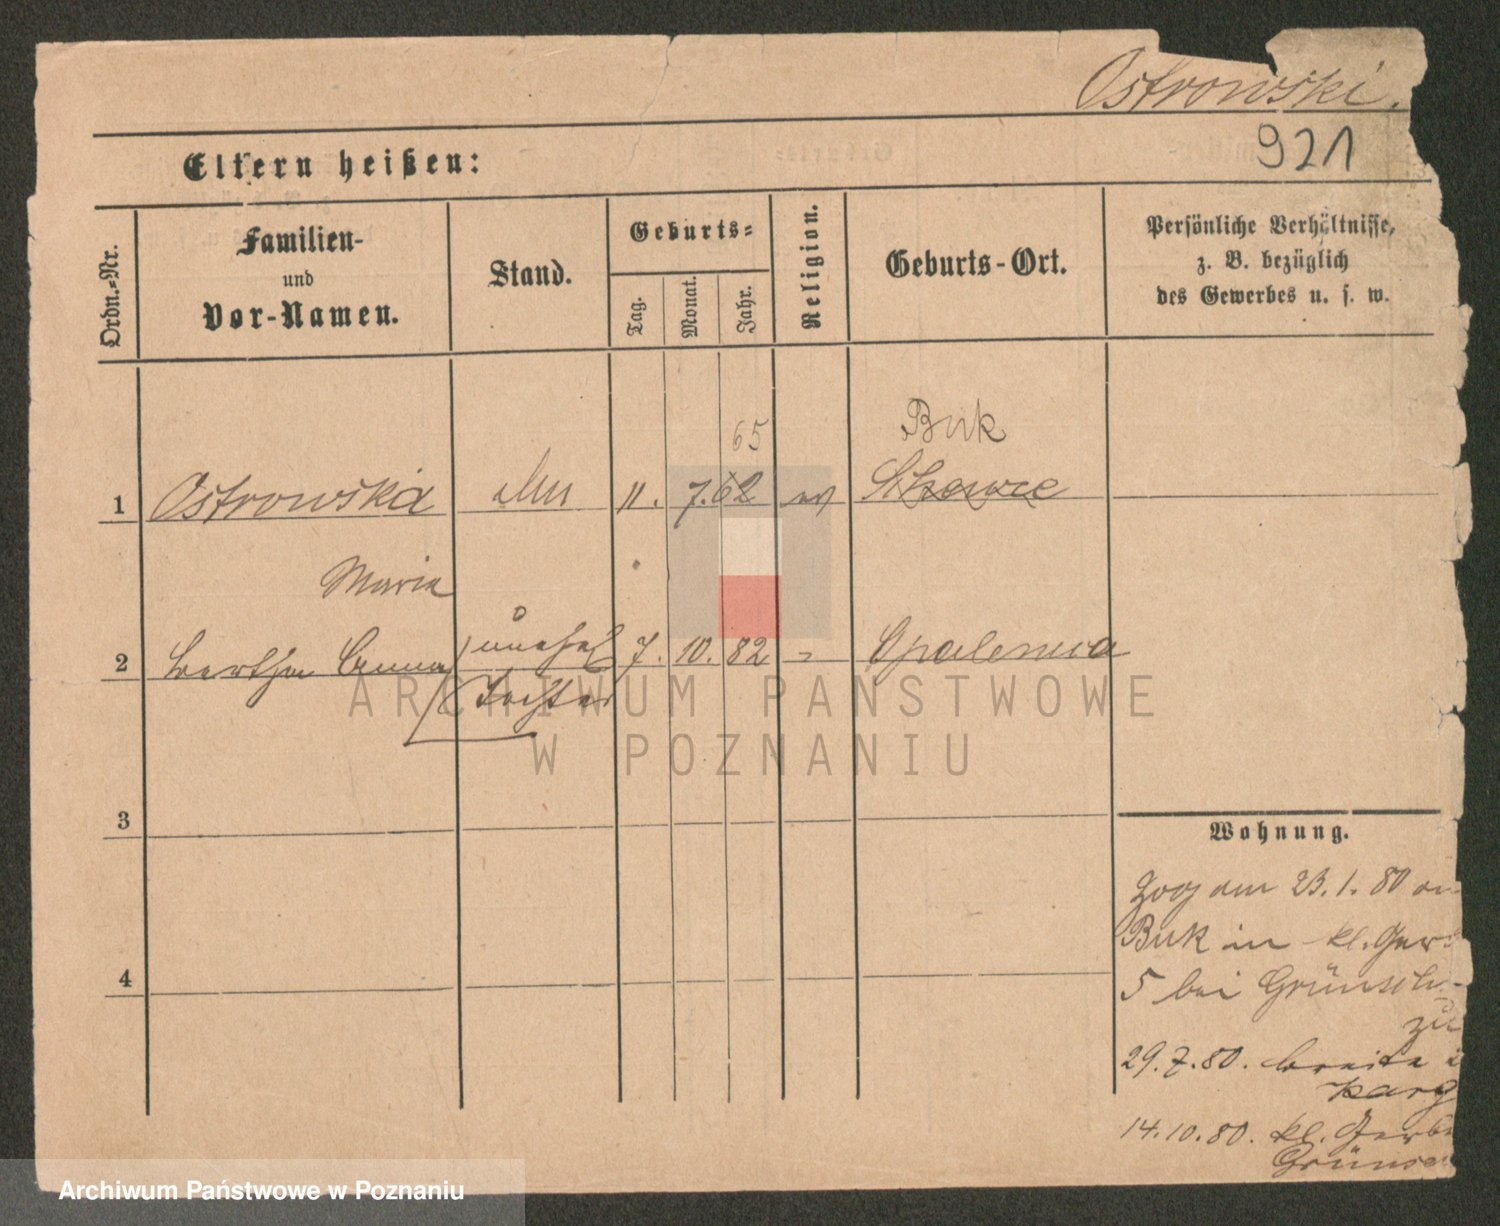 Ostrowski.
921
Eltern heißen:
Ordn.-Nr.
Familien-
und
Vor-Namen.
Stand.
Geburts-
Tag.
Monat.
Jahr.
Religion.
Geburts-Ort.
Persönliche Verhältnisse,
z. B. bezüglich
des Gewerbes u. s. w.
65 Buk
1 Ostrowska 11. 7. 62
Maria
2 Bertha Anna unehel 7. 10. 82 Opalenica
Tochter
3
4
Wohnung.
Zog am 23. 1. 80 
Buk in kl. Ger
5 bei Grünsch
zu
29. 7. 80. breite
Karg
14. 10. 80. kl. Gerb
Grüns
ARCHIWUM PAŃSTWOWE
W POZNANIU
Archiwum Państwowe w Poznaniu